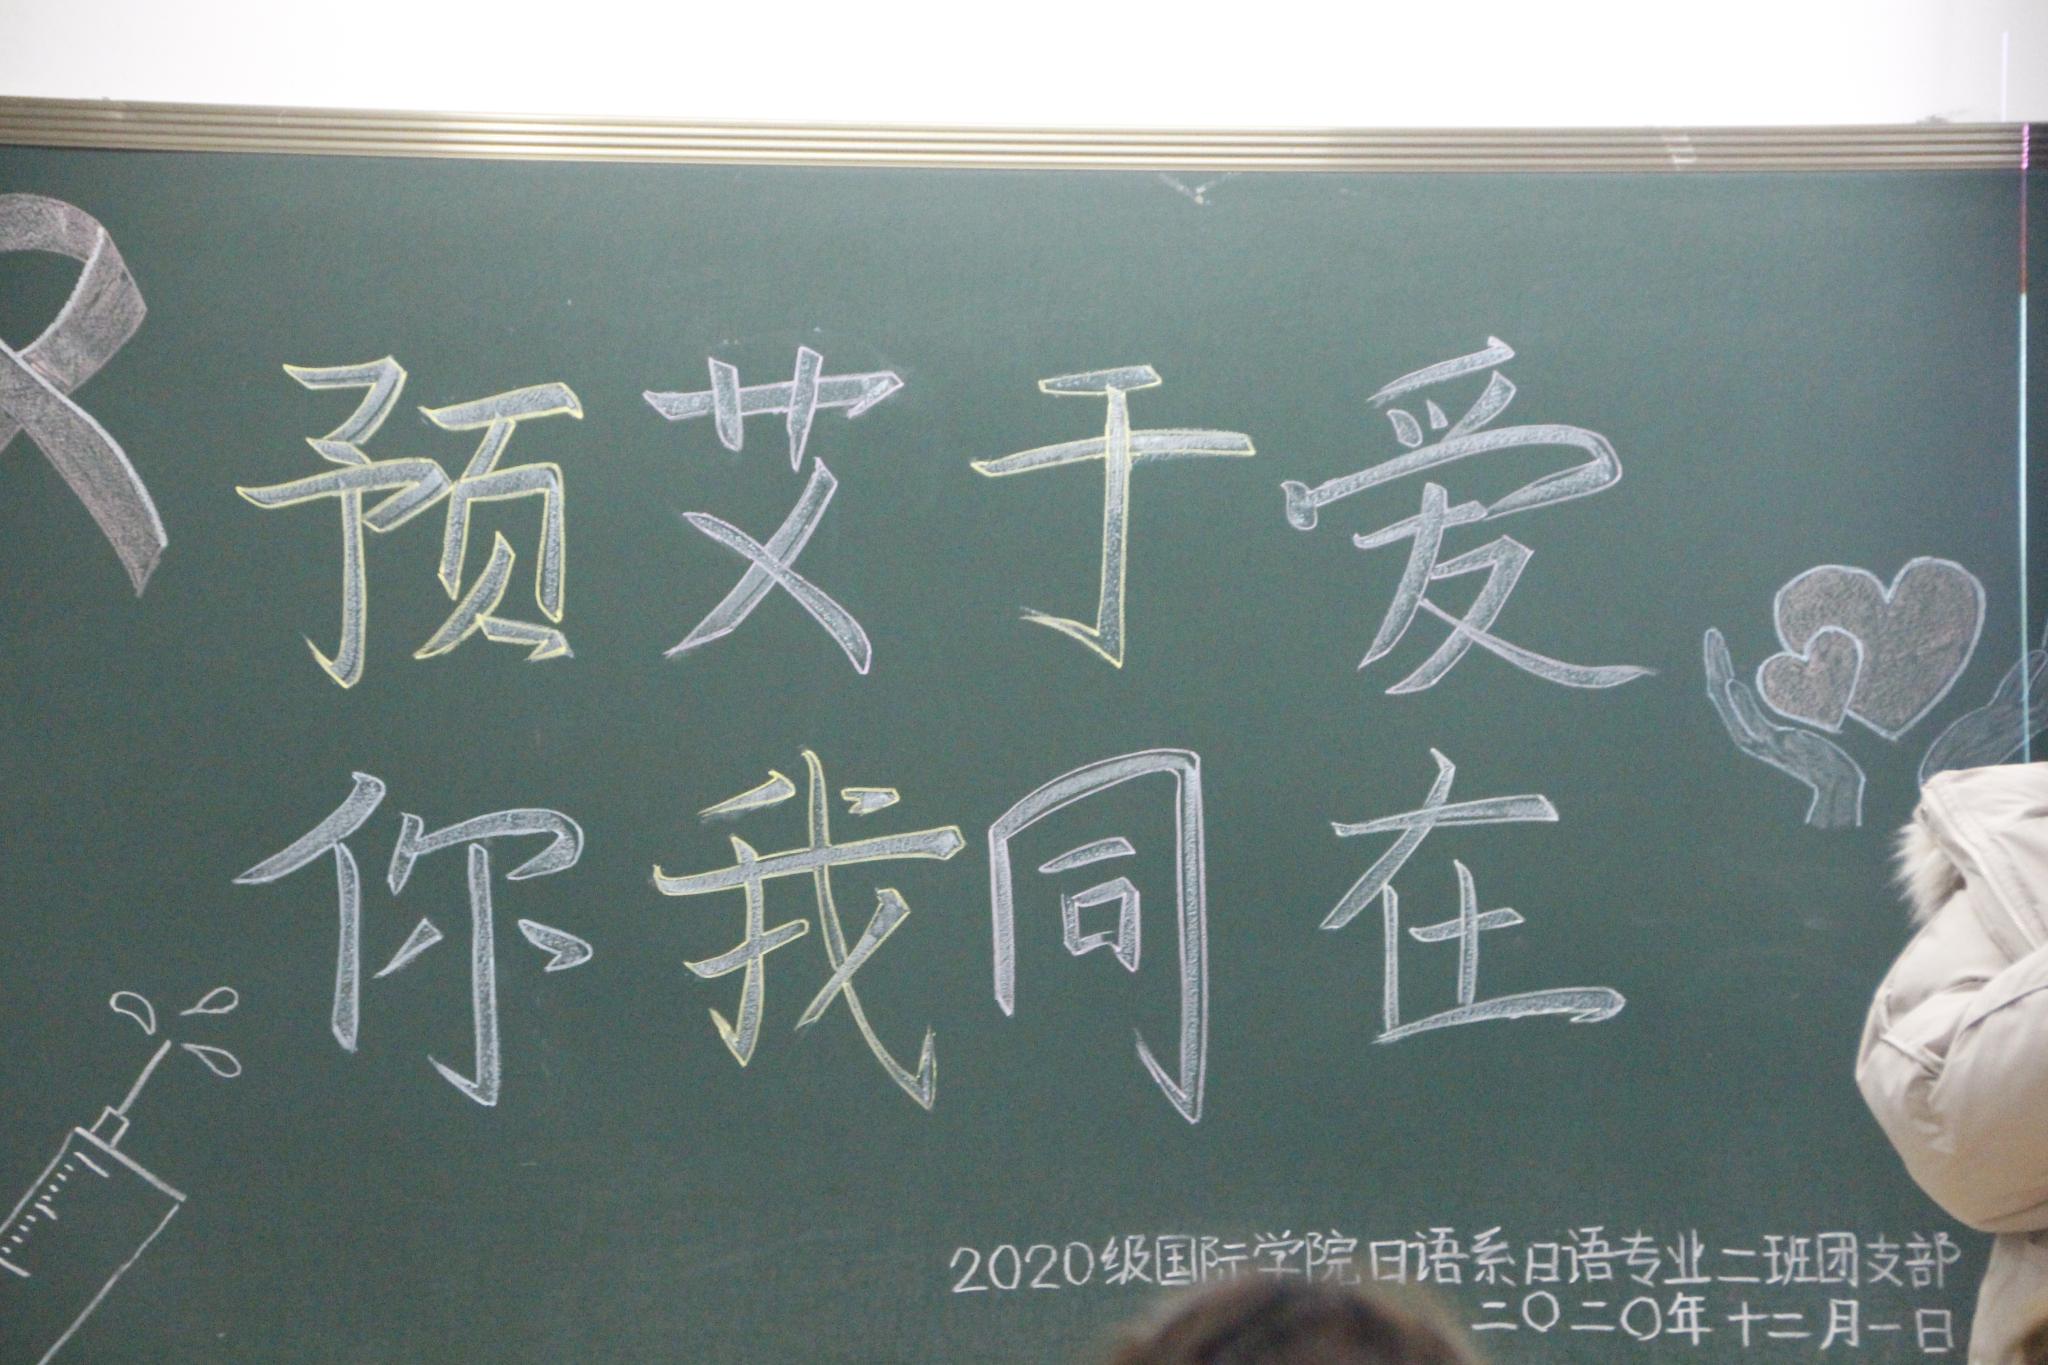 预艾于爱
你我同在
2020级国际学院日语系日语专业二班团支部
二〇二〇年十二月一日